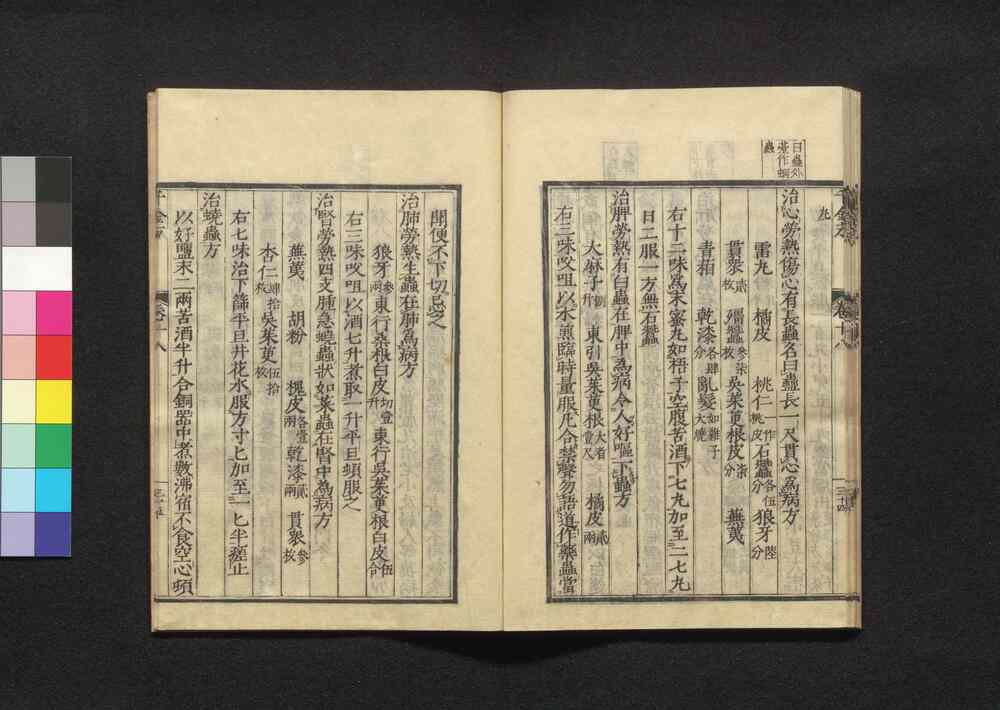 曰蟲外
臺作蛔
蟲
千金方
卷十八
三十四
九
治心勞熱傷心有長蟲名曰蠱長一尺貫心爲病方
雷丸 橘皮 桃仁一作桃皮 石蠶各伍分 狼牙陸分
貫衆貳枚 殭蠶參柒枚 吳茱萸根皮柒分 蕪荑
青葙 乾漆各肆分 亂髮如雞子大燒
右十二味爲末蜜丸如梧子空腹苦酒下七丸加至二七丸
日二服一方無石蠶
治脾勞熱有白蟲在脾中爲病令人好嘔下蟲方
大麻子 東引吳茱萸根大者壹尺 橘皮貳兩
右三味㕮咀以水煎臨時量服凡合禁聲勿語道作藥蟲當
聞便不下切忌之
治肺勞熱生蟲在肺爲病方
狼牙參兩 東行桑根白皮切壹升 東行吳茱萸根白皮伍合
右三味㕮咀以酒七升煮取一升平旦頓服之
治腎勞熱四支腫急蟯蟲狀如菜蟲在腎中爲病方
蕪荑 胡粉 槐皮各壹兩 乾漆貳兩 貫衆參枚
杏仁肆拾枚 吳茱萸伍拾枚
右七味治下篩平旦井花水服方寸匕加至一匕半瘥止
治蟯蟲方
以好鹽末二兩苦酒半升合銅器中煮數沸宿不食空心頓
千金方
卷十八